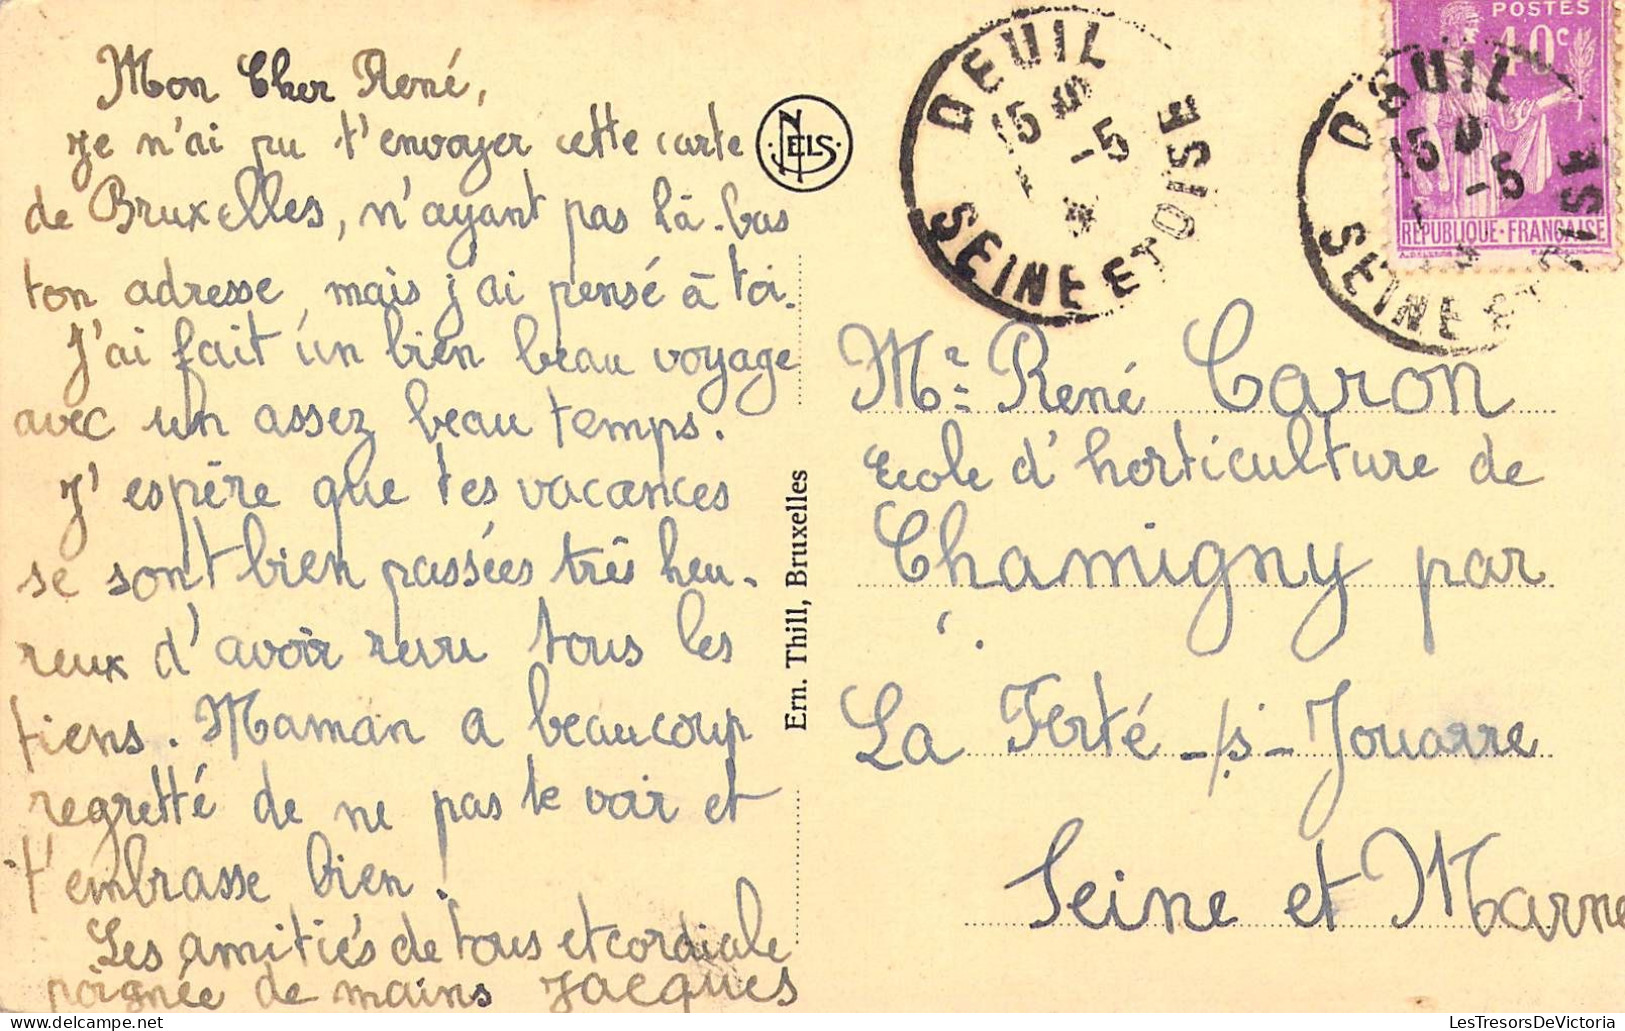 Mon Cher René,
Je n'ai pu t'envoyer cette carte
de Bruxelles, n'ayant pas là-bas
ton adresse, mais j'ai pensé à toi.
J'ai fait un bien beau voyage
avec un assez beau temps.
J'espère que tes vacances
se sont bien passées très heu-
reux d'avoir revu tous les
tiens. Maman a beaucoup
regretté de ne pas te voir et
t'embrasse bien.
Les amitiés de tous et cordiale
poignée de mains Jacques
NELS
Ern. Thill, Bruxelles
DEUIL
15
-5
SEINE ET OISE
POSTES
40c
REPUBLIQUE-FRANÇAISE
DEUIL
15
-5
SEINE ET OISE
Mr René Caron
Ecole d'horticulture de
Chamigny par
La Ferté -/s- Jouarre
Seine et Marne
LesTresorsDeVictoria